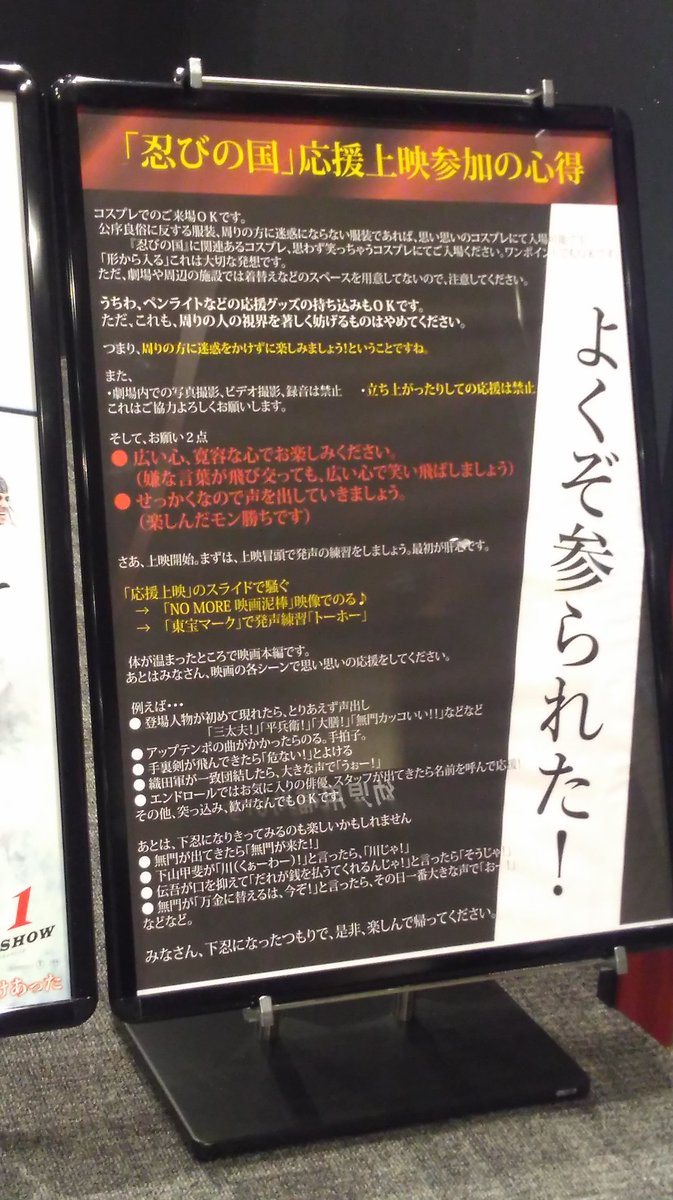 「忍びの国」応援上映参加の心得
コスプレでのご来場ＯＫです。
公序良俗に反する服装、周りの方に迷惑にならない服装であれば、思い思いのコスプレにて入場
『忍びの国』に関連あるコスプレ、思わず笑っちゃうコスプレにてご入場ください。ワンポイント
「形から入る」これは大切な発想です。
ただ、劇場や周辺の施設では着替えなどのスペースを用意してないので、注意してください。
うちわ、ペンライトなどの応援グッズの持ち込みもＯＫです。
ただ、これも、周りの人の視界を著しく妨げるものはやめてください。
つまり、周りの方に迷惑をかけずに楽しみましょう！ということですね。
また、
・劇場内での写真撮影、ビデオ撮影、録音は禁止　・立ち上がったりしての応援は禁止
これはご協力よろしくお願いします。
そして、お願い２点
● 広い心、寛容な心でお楽しみください。
（嫌な言葉が飛び交っても、広い心で笑い飛ばしましょう）
● せっかくなので声を出していきましょう。
（楽しんだモン勝ちです）
さあ、上映開始。まずは、上映冒頭で発声の練習をしましょう。最初が肝心です。
「応援上映」のスライドで騒ぐ
→　「NO MORE 映画泥棒」映像でのる♪
→　「東宝マーク」で発声練習「トーホー」
体が温まったところで映画本編です。
あとはみなさん、映画の各シーンで思い思いの応援をしてください。
例えば・・・
● 登場人物が初めて現れたら、とりあえず声出し
「三太夫！」「平兵衛！」「大膳！」「無門カッコいい！！」などなど
● アップテンポの曲がかかったらのる。手拍子。
● 手裏剣が飛んできたら「危ない！」とよける
● 織田軍が一致団結したら、大きな声で「うぉー！」
● エンドロールではお気に入りの俳優、スタッフが出てきたら名前を呼んで応援！
その他、突っ込み、歓声なんでもＯＫです。
あとは、下忍になりきってみるのも楽しいかもしれません
● 無門が出てきたら「無門が来た！」
● 下山甲斐が「川（くぁーわー）！」と言ったら、「川じゃ！」
● 伝吾が口を抑えて「だれが銭を払うてくれるんじゃ！」と言ったら「そうじゃ！」
● 無門が「万金に替えるは、今ぞ！」と言ったら、その日一番大きな声で「おー！」
などなど。
みなさん、下忍になったつもりで、是非、楽しんで帰ってください。
よくぞ参られた！
1
SHOW
けあった